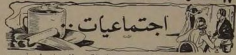 اجتماعيات..